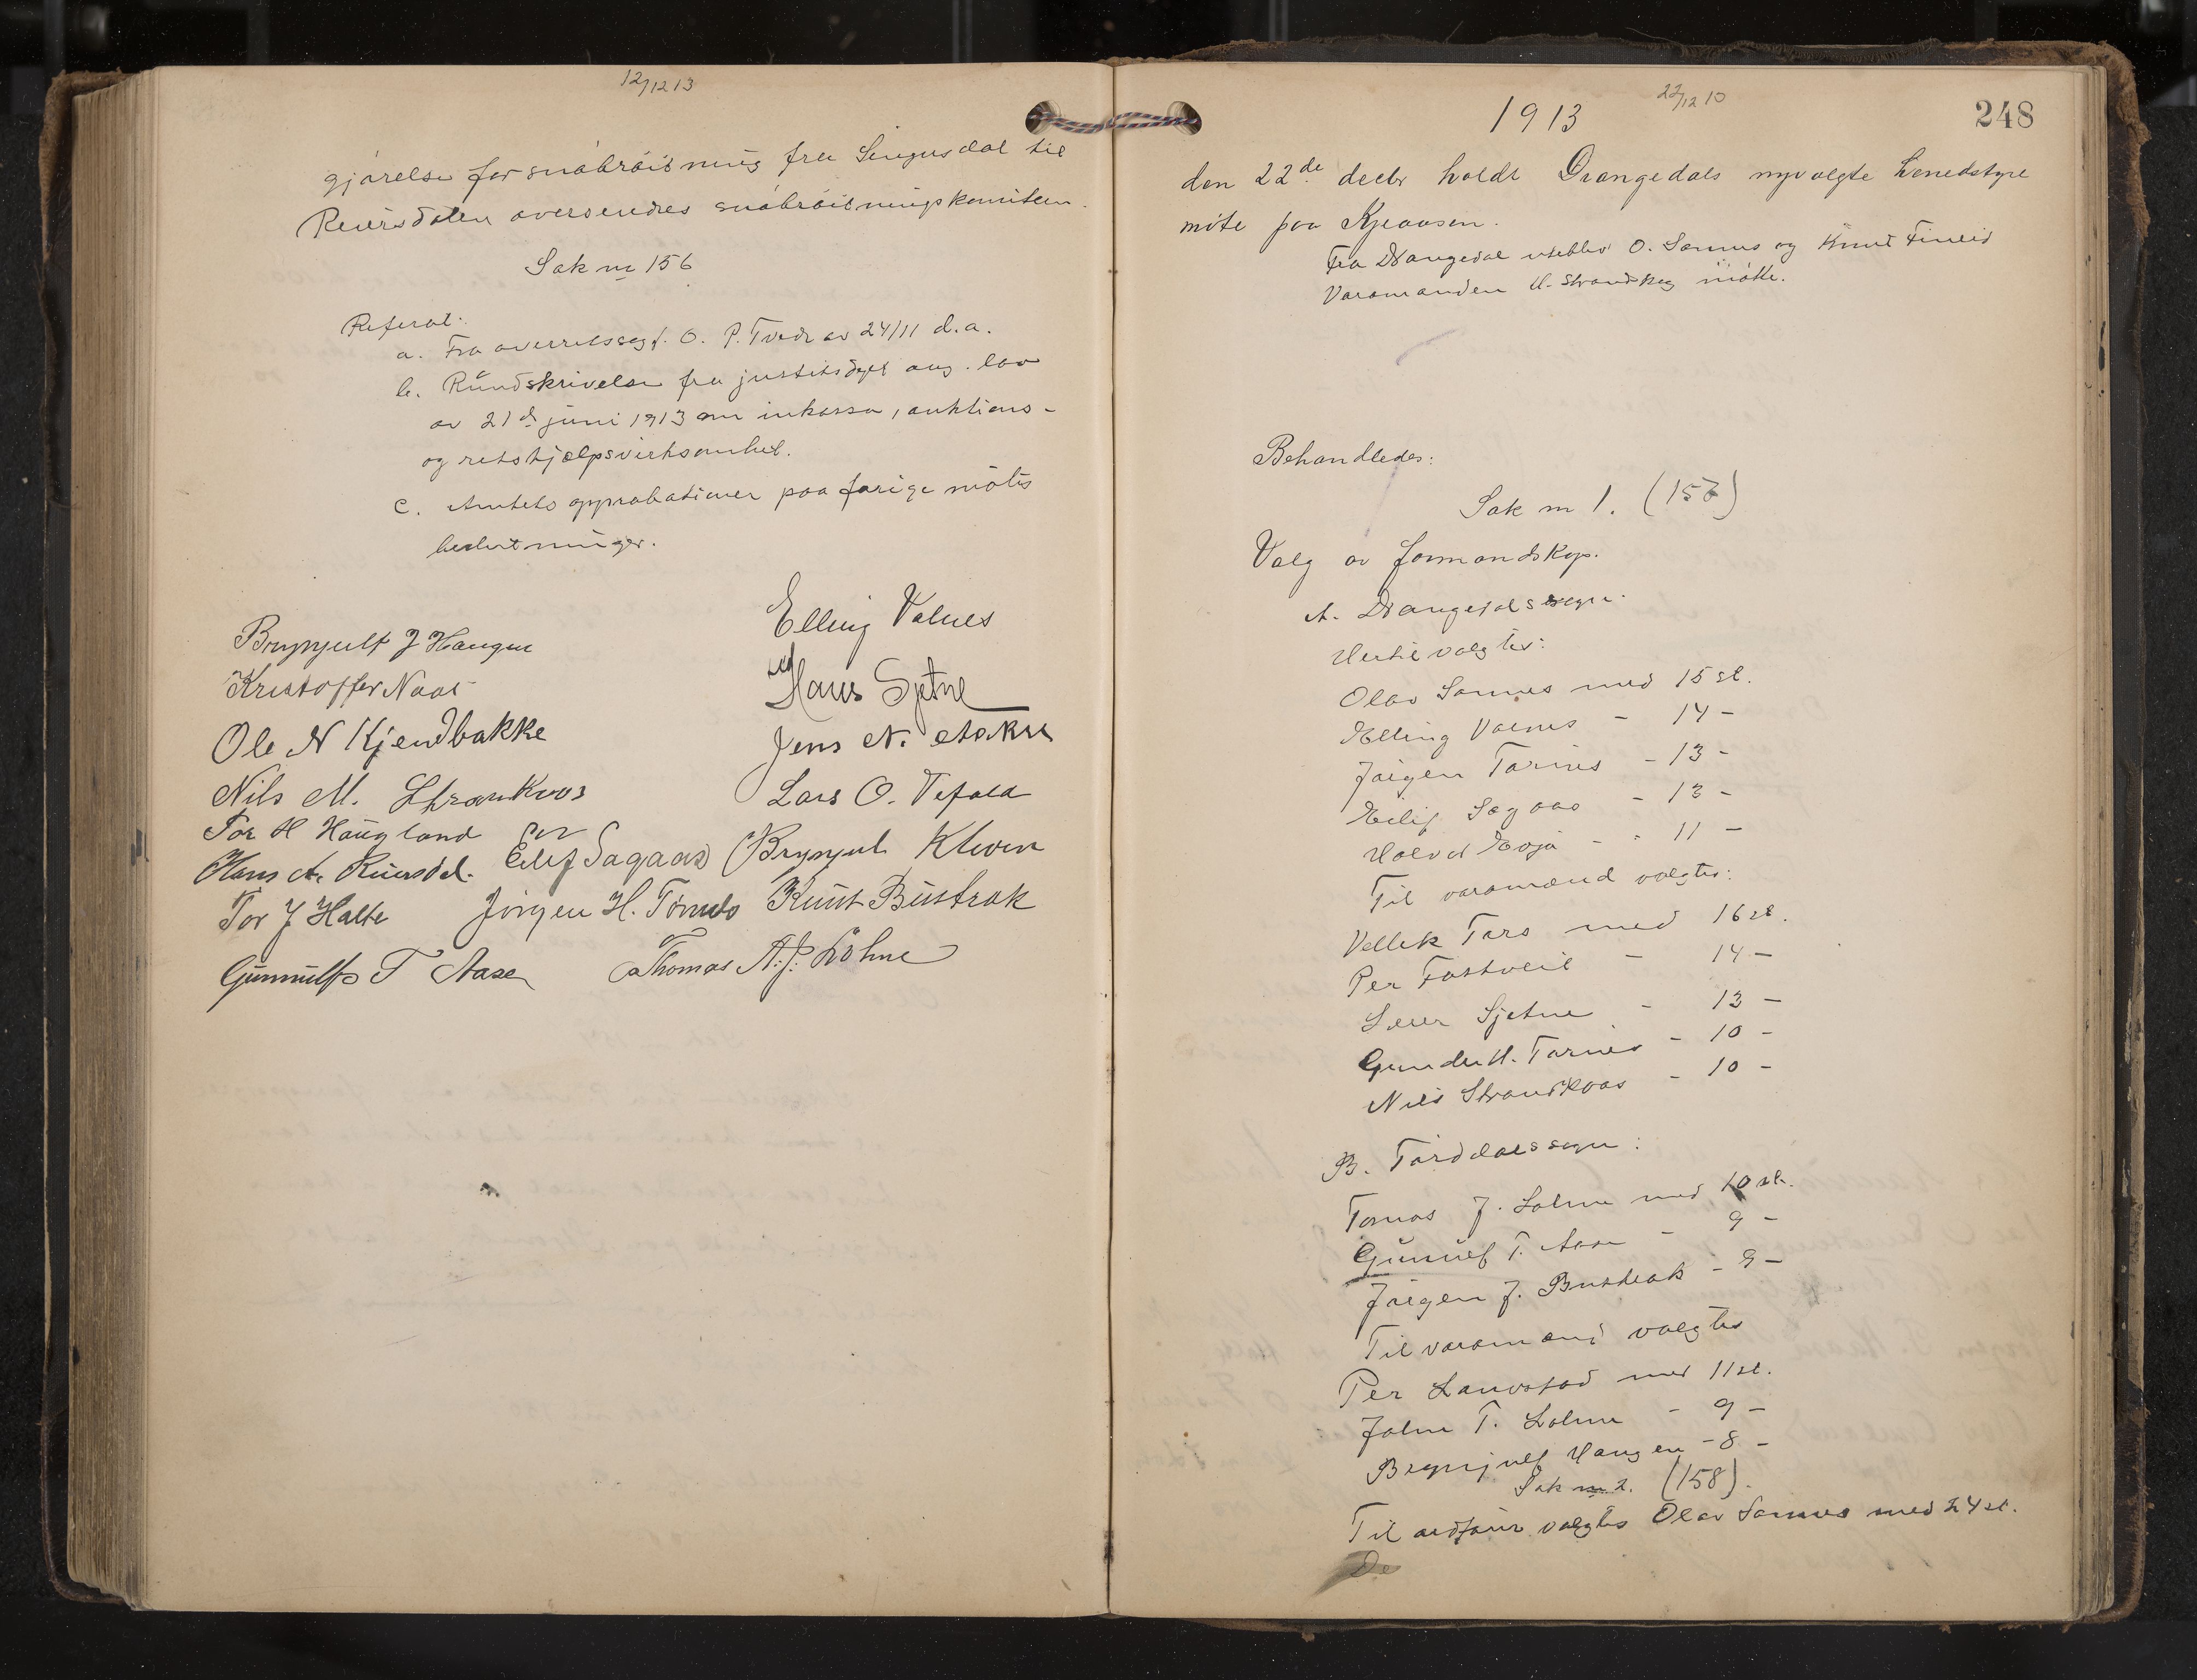 12/12 13
gjørelse for snøbrøitning fra Singusdal til
Reiersdalen oversendes snøbrøitningskomiteen.
Sak nr 156
Referat:
a. Fra overretssagf. O. P. Tvedt av 24/11 d.a.
b. Rundskrivelse fra justitsdept ang. lov
av 21de juni 1913 om inkasso, auktions-
og retshjælpsvirksomhet.
c. Amtets approbationer paa forige møtes
beslutninger.
Brynjulf J Haugen
Kristoffer Naas
Ole N Kjendbakke
Nils M. Strandkvos
Tor H Haugland
Hans A. Reiersdal.
Tor J Halte
Gunnulf T Aase
Eilif Sagaas
Jörgen H. Törnes
Thomas A.J. Löhne
Elling Valnes
Hans Sjetne
Jens N. Aakre
Lars O. Vefald
Brynjul Kleven
Knut Bustrak
1913
22/12 13
248
den 22de decbr holdt Drangedals nyvalgte herredstyre
møte paa Kjeaasen.
Fra Drangedal uteblev O. Sannes og Knut Fineid
Varamanden H. Strandskog møtte.
Behandledes:
Sak nr 1. (157)
Valg av formandskap.
A. Drangedals sogn.
Hertil valgtes:
Olav Sannes med 15 st.
Elling Valnes - 14 -
Jørgen Tørnes - 13 -
Eilif Sagaas - 13 -
Halvd Eoja - - 11 -
Til varamænd valgtes:
Vellek Tors med 16 st.
Per Fostveit - 14 -
Sjetne - 13 -
Gunder H. Tørnes - 10 -
Nils Strandkvaas - 10 -
B. Tørdalssogn:
Tomas J. Løhne med 10 st.
Gunnulf T. Aase - 9 -
Jørgen J. Bustrak - 9 -
Til varamænd valgtes
Per Landstad med 11 st.
John T. Løhne - 9 -
Brynjulf Haugen - 8 -
Sak nr 2. (158).
Til ordfører valgtes Olav Sannes med 24 st.
De